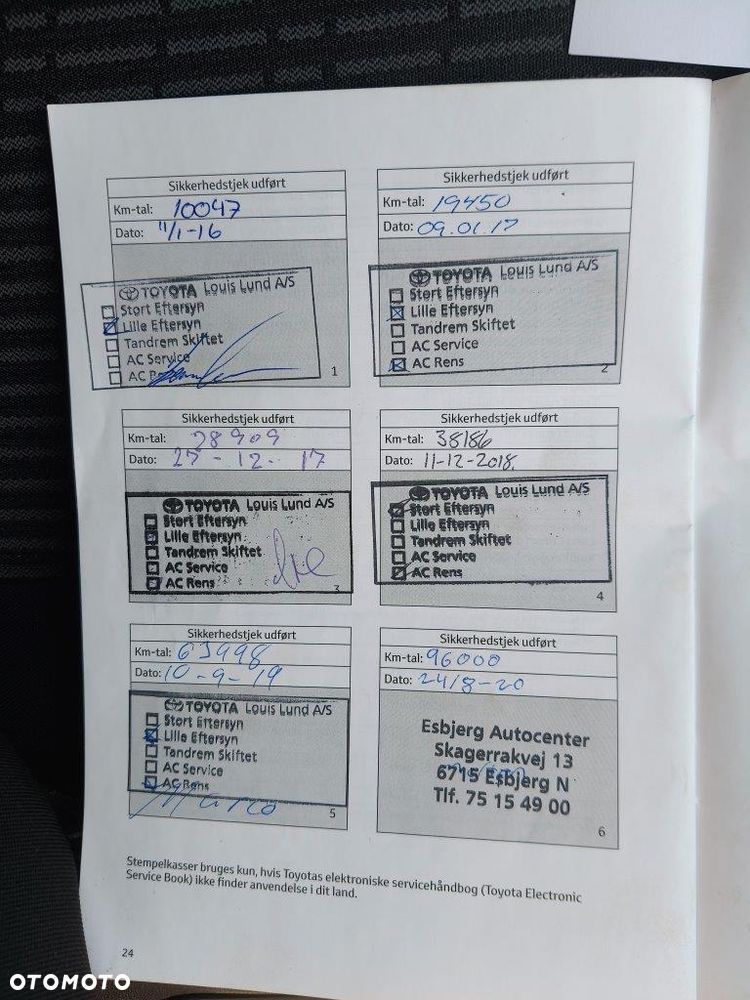 Sikkerhedstjek udført
Km-tal: 10047
Dato: 11/1-16
TOYOTA Louis Lund A/S
Stort Eftersyn
Lille Eftersyn
Tandrem Skiftet
AC Service
AC
1
Sikkerhedstjek udført
Km-tal: 19450
Dato: 09.01.17
TOYOTA Louis Lund A/S
Stort Eftersyn
Lille Eftersyn
Tandrem Skiftet
AC Service
AC Rens
2
Sikkerhedstjek udført
Km-tal: 28909
Dato: 27-12-17
TOYOTA Louis Lund A/S
Stort Eftersyn
Lille Eftersyn
Tandrem Skiftet
AC Service
AC Rens
3
Sikkerhedstjek udført
Km-tal: 38186
Dato: 11-12-2018.
TOYOTA Louis Lund A/S
Stort Eftersyn
Lille Eftersyn
Tandrem Skiftet
AC Service
AC Rens
4
Sikkerhedstjek udført
Km-tal: 63498
Dato: 10-9-19
TOYOTA Louis Lund A/S
Stort Eftersyn
Lille Eftersyn
Tandrem Skiftet
AC Service
AC Rens
Marco
5
Sikkerhedstjek udført
Km-tal: 96000
Dato: 24/8-20
Esbjerg Autocenter
Skagerrakvej 13
6715 Esbjerg N
Tlf. 75 15 49 00
6
Stempelkasser bruges kun, hvis Toyotas elektroniske servicehåndbog (Toyota Electronic
Service Book) ikke finder anvendelse i dit land.
24
OTOMOTO